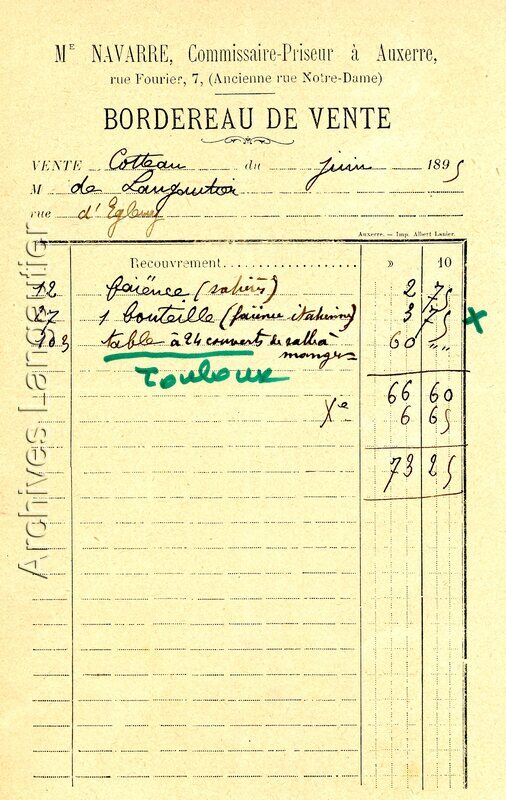 Mᴱ NAVARRE, Commissaire-Priseur à Auxerre,
rue Fourier, 7, (Ancienne rue Notre-Dame)
BORDEREAU DE VENTE
VENTE Cotteau du juin 1895
M de Langautier
rue d'Egleny
Auxerre. — Imp. Albert Lanier.
Recouvrement » 10
12 faïence (salière) 2 75
27 1 bouteille (faïence italienne) 3 75 x
103 table à 24 couverts de salle à 60 ""
manger
Touloux
66 60
Xe 6 65
73 25
Archives Langautier